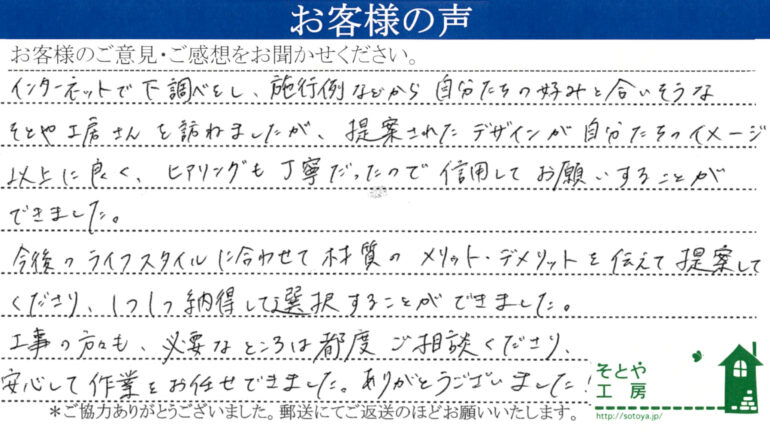 お客様の声
お客様のご意見・ご感想をお聞かせください。
インターネットで下調べをし、施行例などから自分たちの好みと合いそうな
そとや工房さんを訪ねましたが、提案されたデザインが自分たちのイメージ
以上に良く、ヒアリングも丁寧だったので信用してお願いすることが
できました。
今後のライフスタイルに合わせて材質のメリット・デメリットを伝えて提案して
くださり、1つ1つ納得して選択することができました。
工事の方々も、必要なところは都度ご相談くださり、
安心して作業をお任せできました。ありがとうございました!
そとや
工房
http://sotoya.jp/
＊ご協力ありがとうございました。郵送にてご返送のほどお願いいたします。